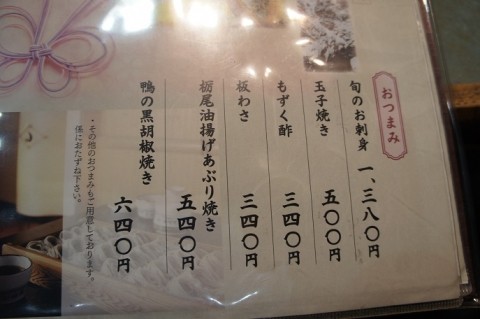 おつまみ
旬のお刺身 一、三八〇円
玉子焼き 五〇〇円
もずく酢 三四〇円
板わさ 三四〇円
栃尾油揚げあぶり焼き 五四〇円
鴨の黒胡椒焼き 六四〇円
・その他のおつまみもご用意しております。
係におたずね下さい。